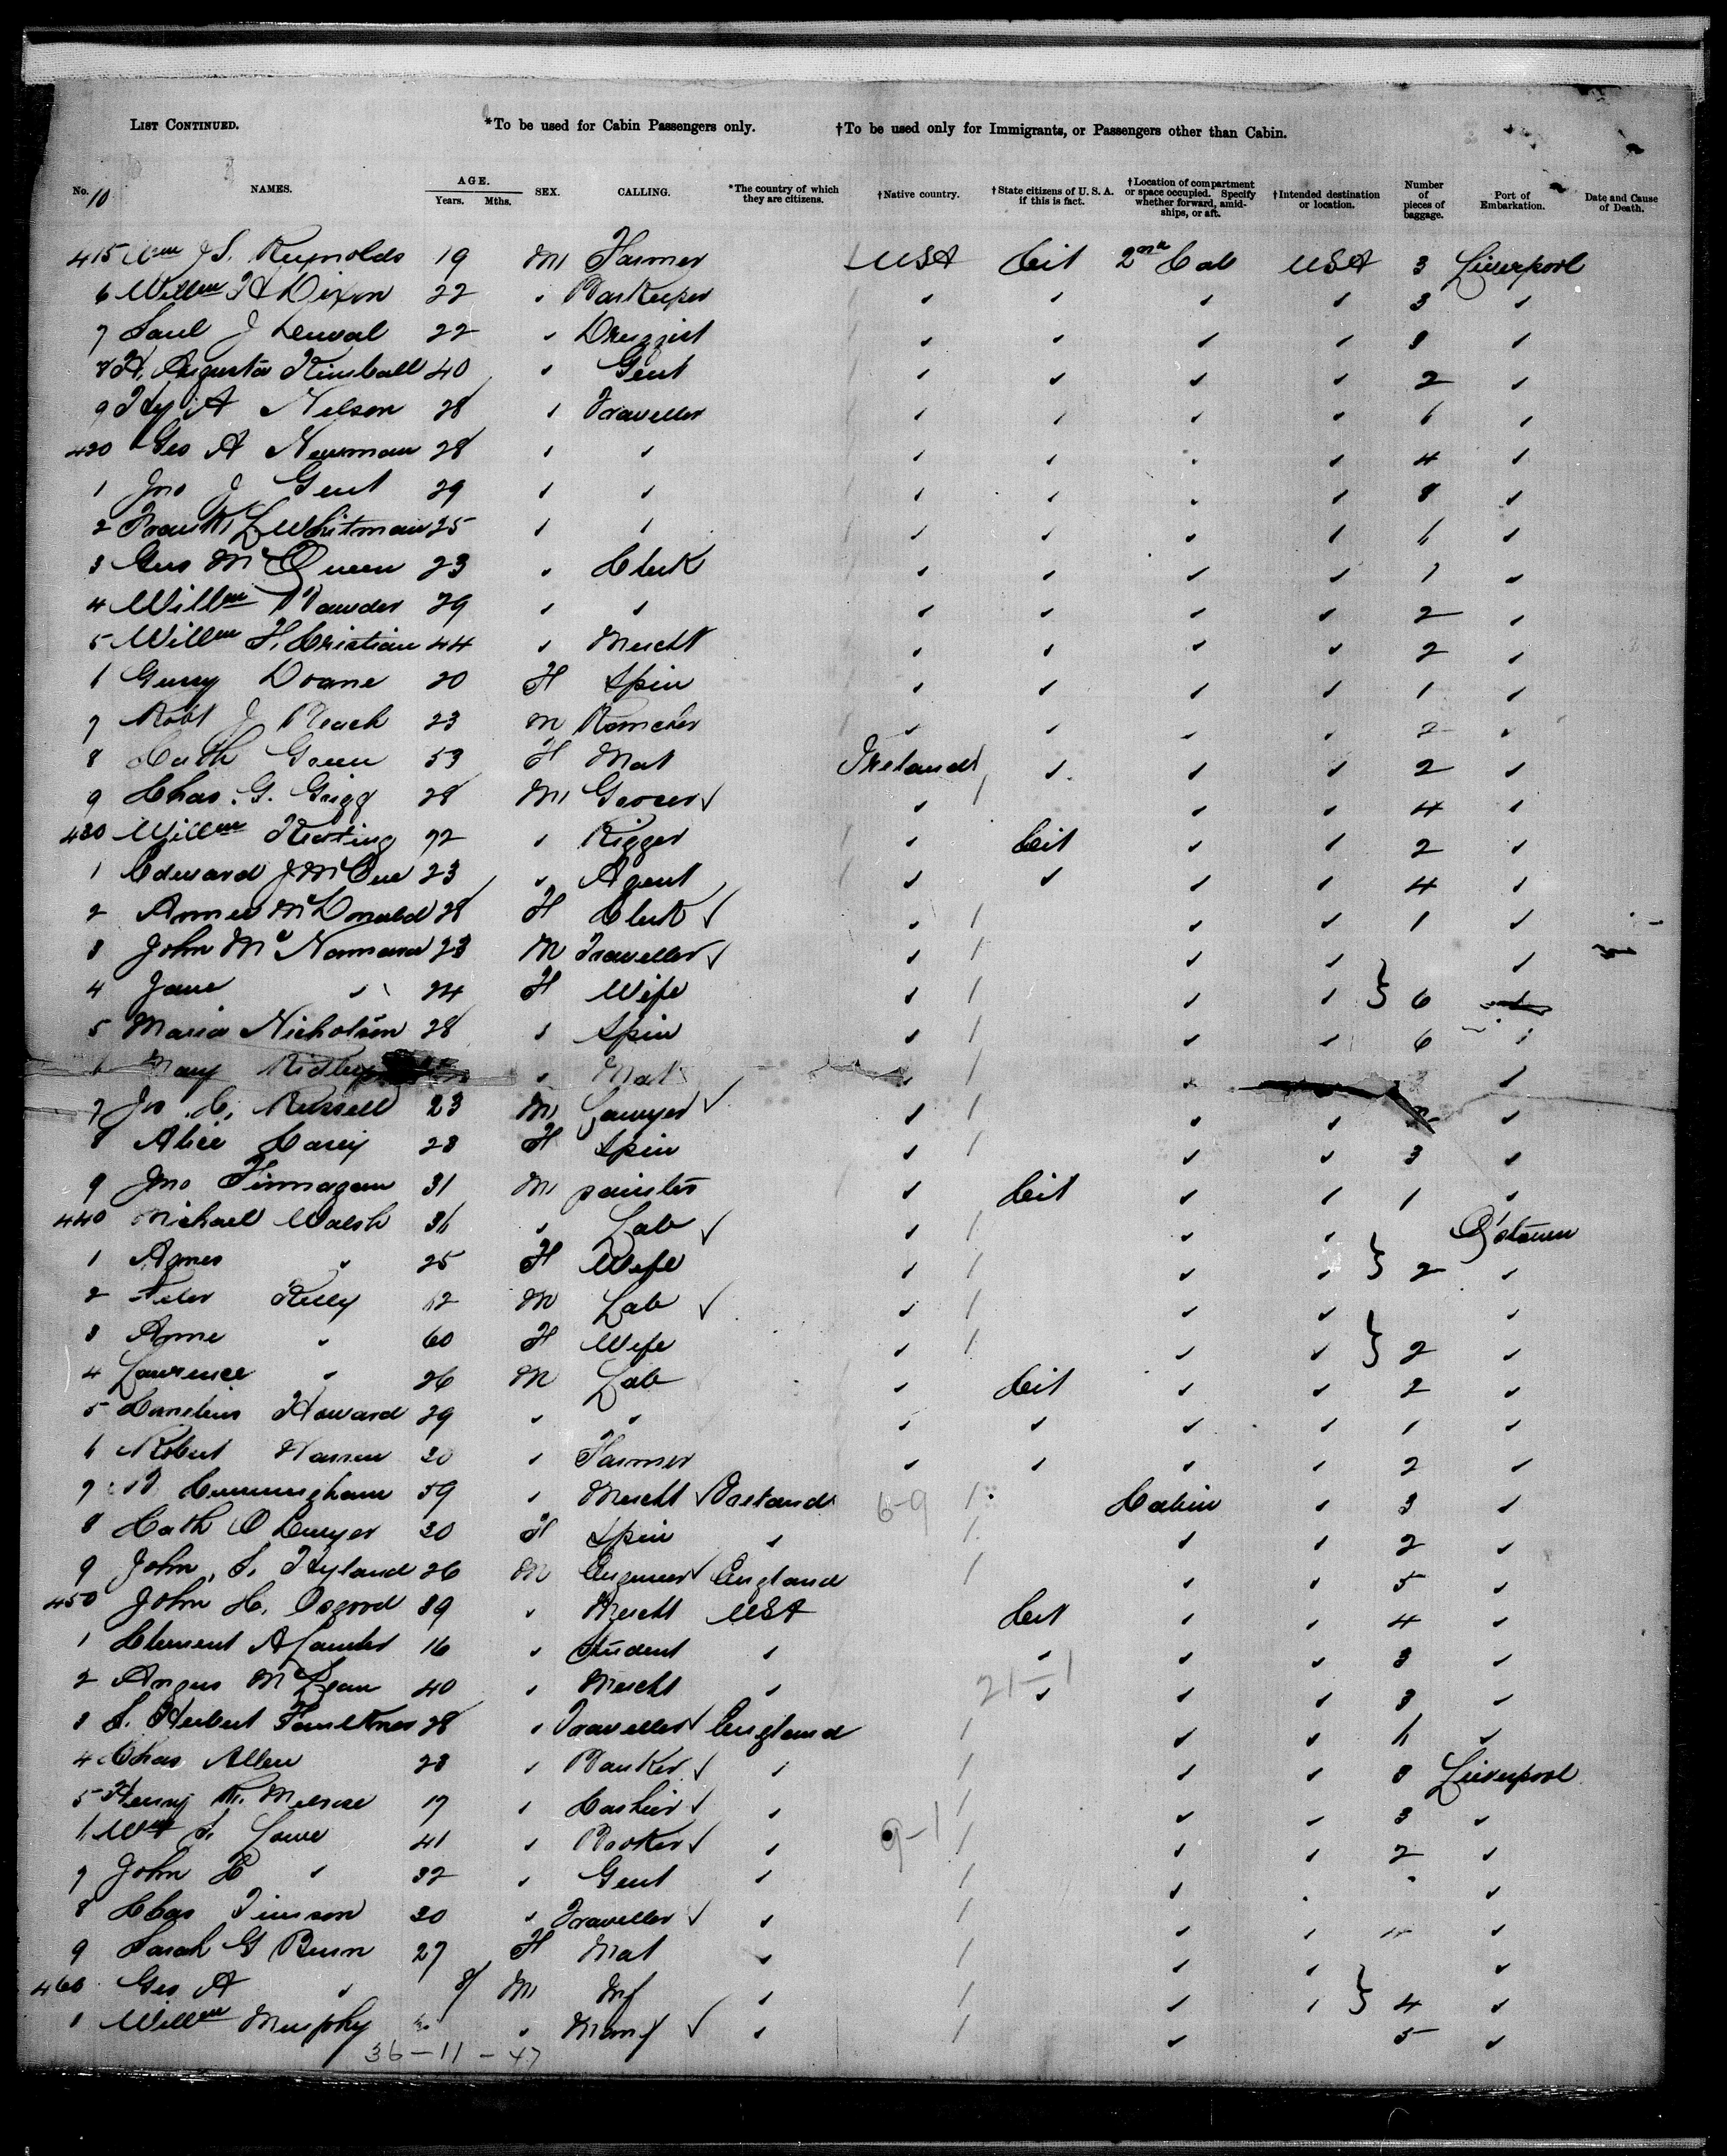 LIST CONTINUED. *To be used for Cabin Passengers only. †To be used only for Immigrants, or Passengers other than Cabin.
No. 10 NAMES. AGE. Years. Mths. SEX. CALLING. *The country of which they are citizens. †Native country. †State citizens of U. S. A. if this is fact. †Location of compartment or space occupied. Specify whether forward, amid-ships, or aft. †Intended destination or location. Number of pieces of baggage. Port of Embarkation. Date and Cause of Death.
415 Wm S. Reynolds 19 M Farmer USA Cit 2nd Cab USA 3 Liverpool
6 Willm H Dixon 22 " Barkeeper " " " " 3 "
7 Paul J Duval 22 " Druggist " " " " "
8 H. Augusta Kimball 40 " Gent " " " " 2 "
9 Hy A Nelson 28 " Traveller " " " " 1 "
420 Geo A Newman 28 " " " " " " 4 "
1 Jno J Gent 29 " " " " " " "
2 Frank L Whitman 25 " " " " " " 1 "
3 Gus McQueen 23 " Clerk " " " " 1 "
4 Willm 29 " " " " " " 2 "
5 Willm H. Cristian 44 " Mercht " " " " 2 "
6 Doane 20 F Spin " " " " 1 "
7 Robt J 23 M Rancher " " " " 2 "
8 Cath Green 53 F Mat Ireland " " " 2 "
9 Chas. G. Grigg 28 M Grocer " " " 4 "
430 Willm Keating 72 " Rigger " Cit " " 2 "
1 Edward J McCue 23 " Agent " " " " 4 "
2 Annie McDonald 28 F Clerk " " " 1 "
3 John McNamara 23 M Traveller " " " "
4 Jane " 24 F Wife " " " } 6 "
5 Maria Nicholson 28 " Spin " " " 6 "
6 Mary Ridley " Mat " " "
7 Jas. C. Russell 23 M Lawyer " " " "
8 Alice Carey 28 F Spin " " " 3 "
9 Jno Finnagan 31 M painter " Cit " " 1 "
440 Michael Walsh 36 " Lab " " " Q'stown
1 Agnes " 25 F Wife " " " } 2 "
2 Peter Kelly 62 M Lab " " " "
3 Anne " 60 F Wife " " " } 2 "
4 Lawrence " 26 M Lab " Cit " " 2 "
5 Cornelius Howard 29 " " " " " " 1 "
6 Robert 30 " Farmer " " " " 2 "
7 Cunningham 59 " Mercht Ireland 6-9 Cabin " 3 "
8 Cath O Dwyer 30 F Spin " " " 2 "
9 John. S. Hyland 26 M Engineer England " " 5 "
450 John C. Osgood 39 " Mercht USA Cit " " 4 "
1 Clement A 16 " Student " " " " 3 "
2 Angus McLean 40 " Mercht " 21-1 " " " 3 "
3 S. Herbert Faulkner 28 " Traveller England " " "
4 Chas Allen 28 " Banker " " " Liverpool
5 Henry 17 " Cashier " " " 3 "
6 Wm S. Lowe 41 " Broker " 9-1 " " 2 "
7 John H " 32 " Gent " " " "
8 Chas Timson 30 " Traveller " " " "
9 Sarah G Burn 27 F Mat " " " "
460 Geo A " 8/ M Inf " " " } 4 "
1 Willm Murphy " Manf " " 5 "
36-11-47